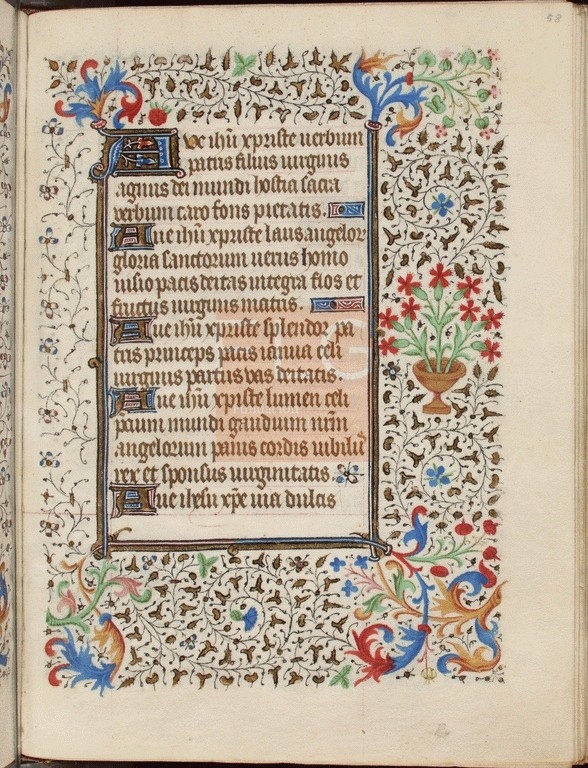 58
Aue ihū xpriste uerbum
patris filius uirginis
agnus dei mundi hostia sacra
verbum caro fons pietatis.
Aue ihū xpriste laus angelor
gloria sanctorum uerus homo
uisio pacis deitas integra flos et
fructus uirginis matris.
Aue ihū xpriste splendor pa
tris princeps pacis ianua celi
uirginis partus vas deitatis.
Aue ihū xpiste lumen celi
pcium mundi gaudium nr̄m
angelorum panis cordis iubiliꝰ
rex et sponsus uirginitatis.
Aue ihesu xp̄e uia dulcis